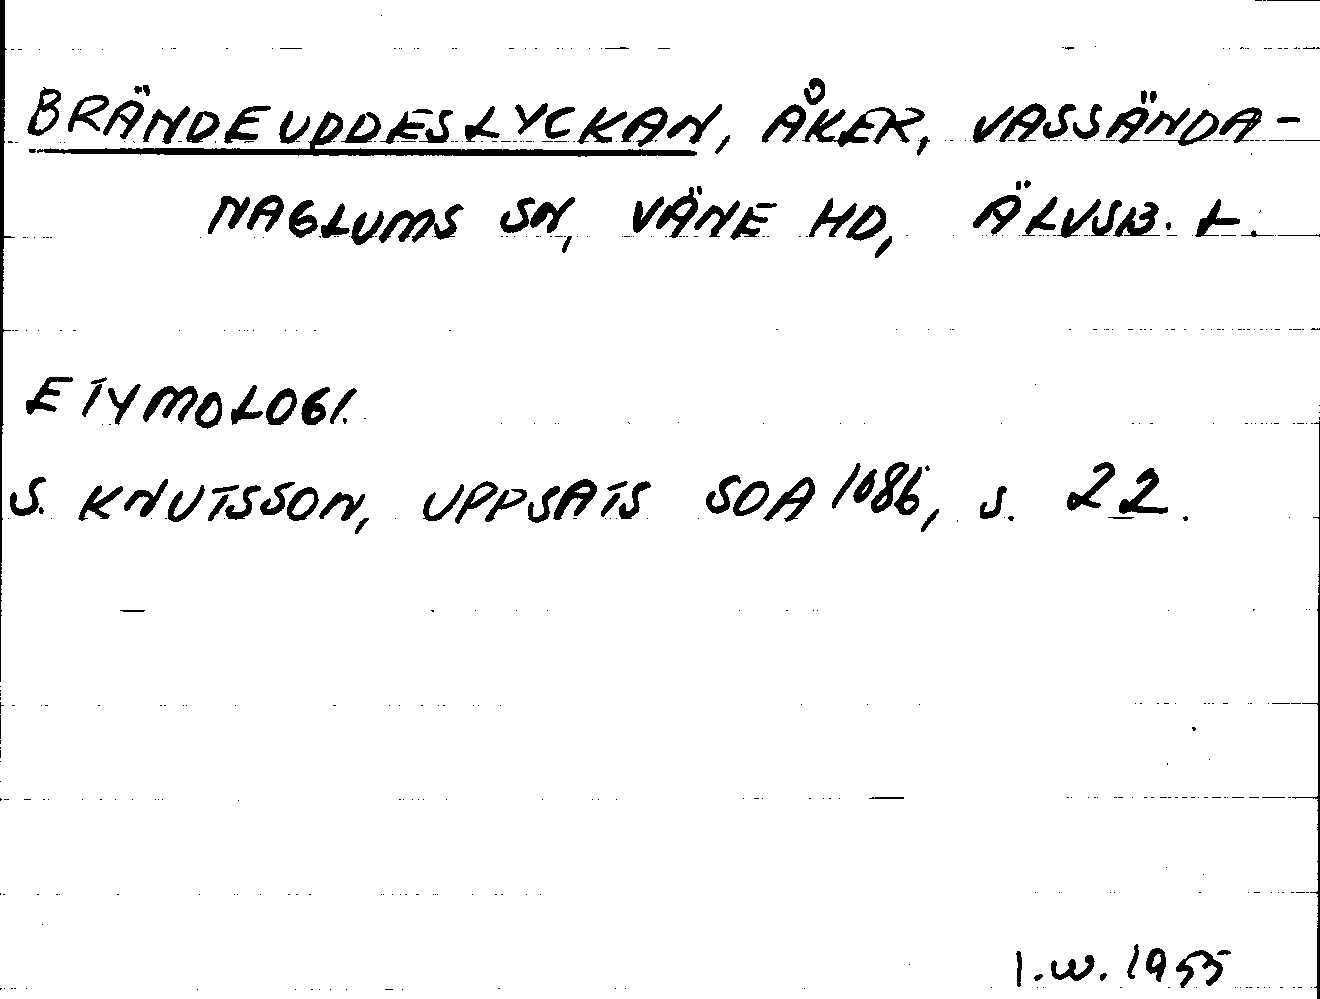 BRÄNDEUDDESLYCKAN, ÅKER, VASSÄNDA-
NAGLUMS SN, VÄNE HD, ÄLVSB. L.
ETYMOLOGI.
S. KNUTSSON, UPPSATS SOA 1086, S. 22.
I.W. 1955